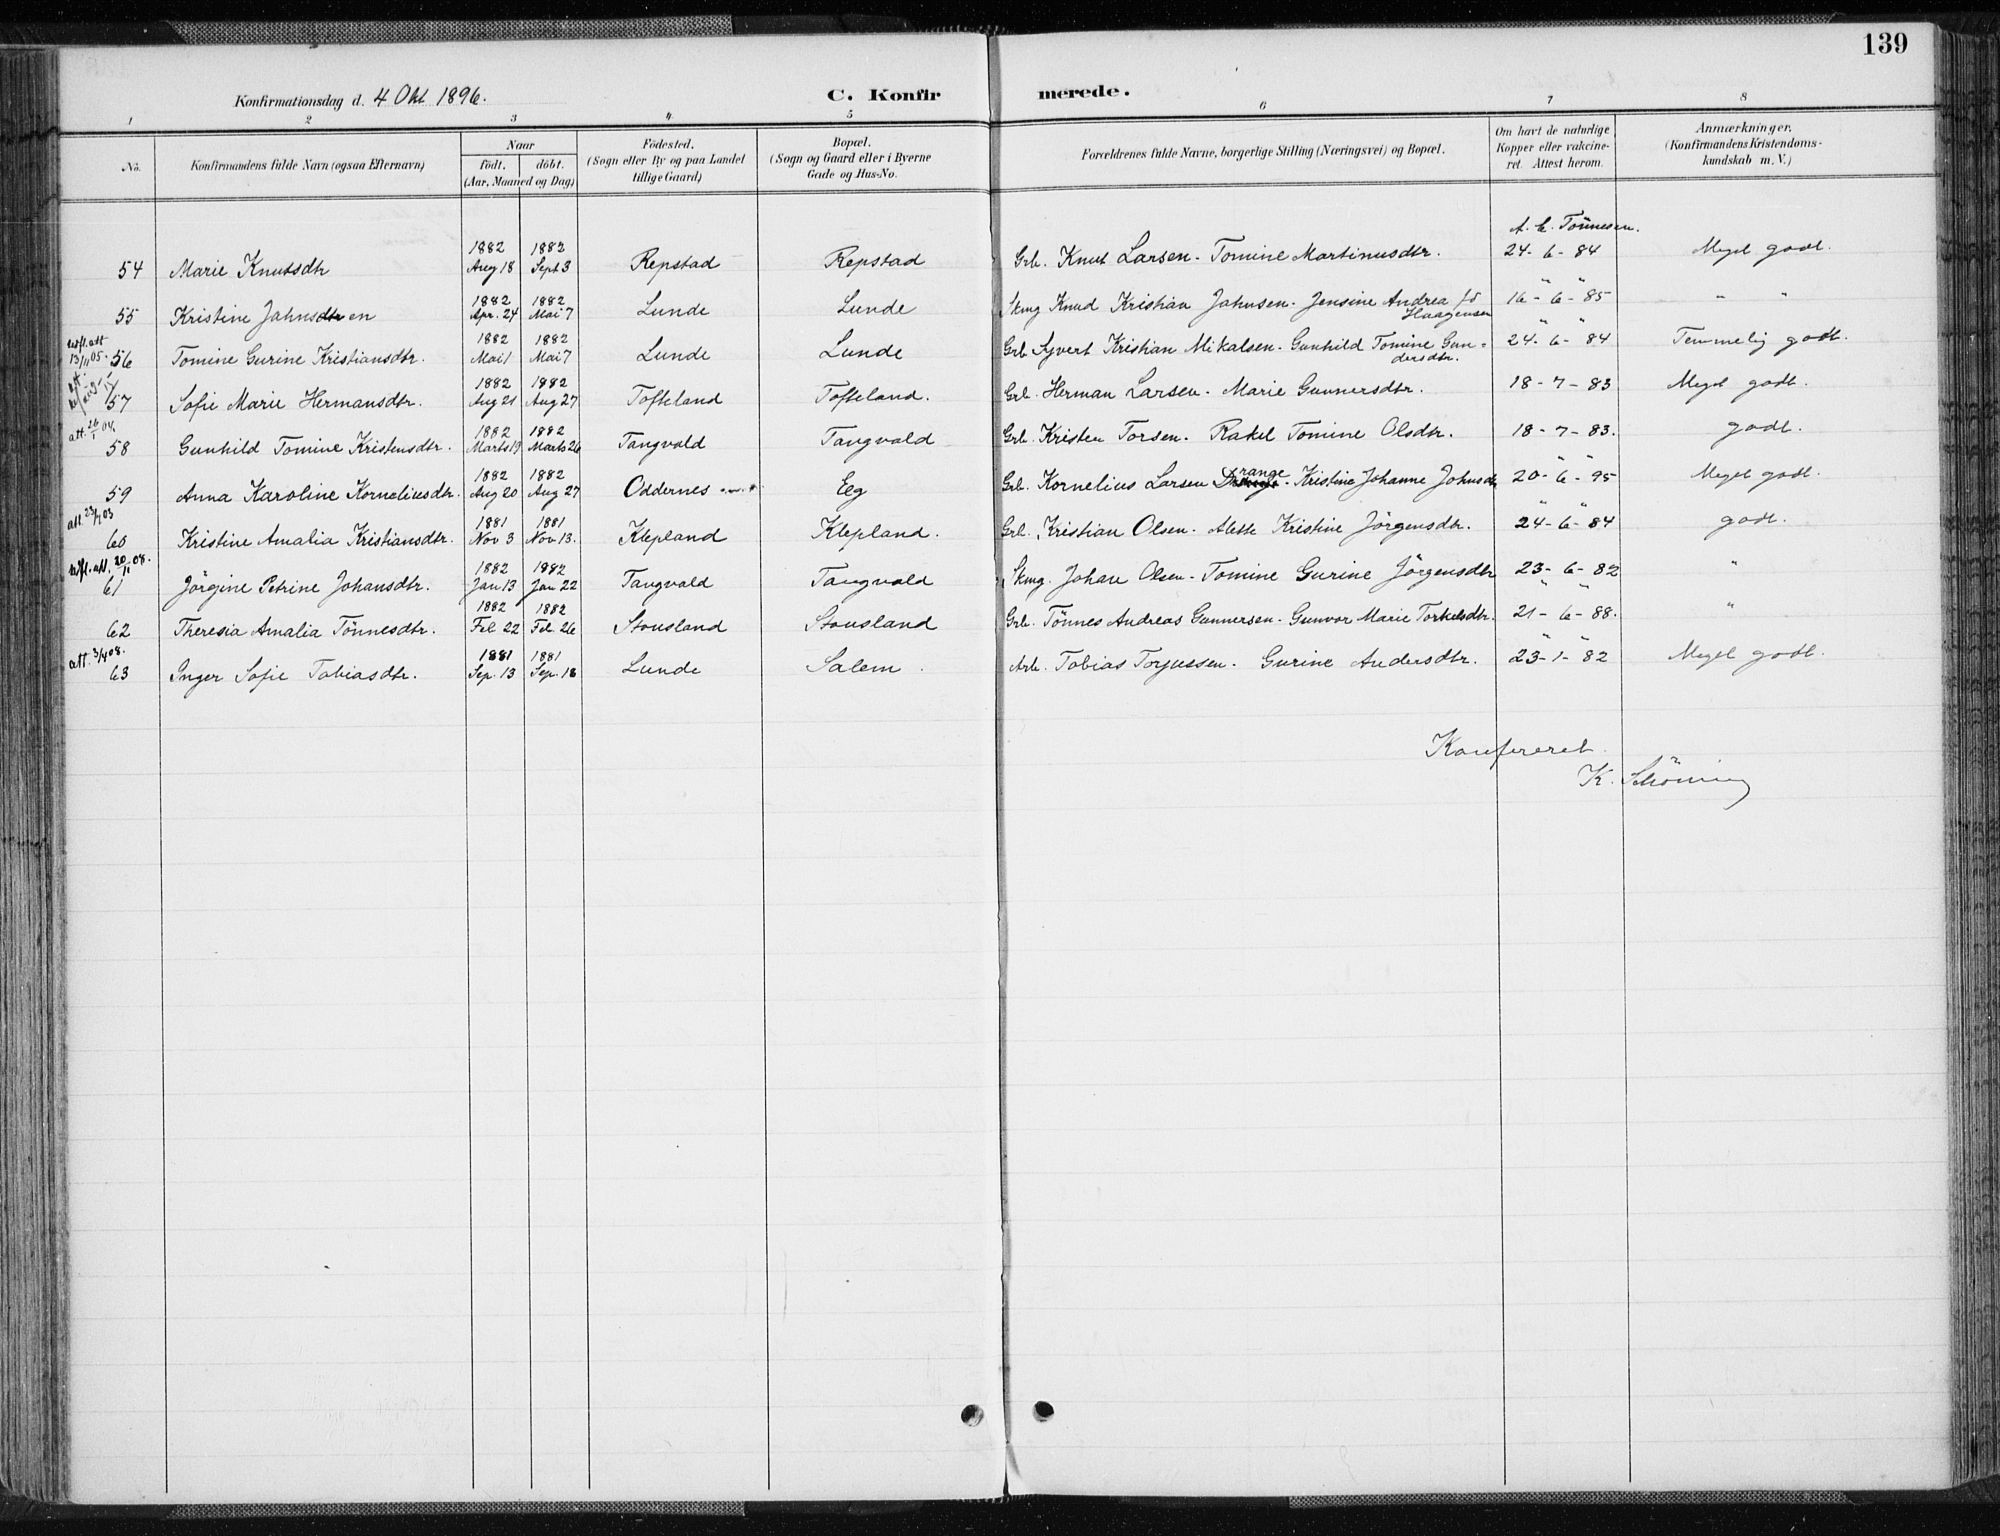 139
Konfirmationsdag d. 4 Okt 1896. C. Konfir merede.
1 2 3 4 5 6 7 8
No. Konfirmandens fulde Navn (ogsaa Efternavn) Naar födt. döbt. (Aar, Maaned og Dag) Födested. (Sogn eller By og paa Landet tillige Gaard) Bopæl. (Sogn og Gaard eller i Byerne Gade og Hus-No. Forældrenes fulde Navne, borgerlige Stilling (Næringsvei) og Bopæl. Om havt de naturlige Kopper eller vakcineret. Attest herom. Anmærkninger. (Konfirmandens Kristendomskundskab m. V.)
A. C. Tönnesen.
54 Marie Knutsdtr 1882 Aug 18 1882 Sept 3 Repstad Repstad Grb. Knut Larsen - Tomine Martinusdtr. 24-6-84 Meget godt.
55 Kristine Jahnsen 1882 Apr. 24 1882 Mai 7 Lunde Lunde Skmg Knud Kristian Jahnsen - Jensine Andrea fö Haagensen 16-6-85 " "
att 13/11 05. 56 Tomine Gurine Kristiansdtr. 1882 Mai 1 1882 Mai 7 Lunde Lunde Grb Syvert Kristian Mikalsen - Gunhild Tomine Gundersdtr. 24-6-84 Temmelig godt.
57 Sofie Marie Hermansdtr. 1882 Aug 21 1882 Aug 27 Tofteland Tofteland. Grb. Herman Larsen - Marie Gunnersdtr. 18-7-83 Meget godt.
att. 26/1 04. 58 Gunhild Tomine Kristensdtr. 1882 Marts 19 1882 Marts 26 Tangvald Tangvald Grb. Kristen Torsen - Rakel Tomine Olsdtr. 18-7-83. godt.
59 Anna Karoline Korneliusdtr. 1882 Aug 20 1882 Aug 27 Oddernes Eeg Grb. Kornelius Larsen Drange - Kristine Johanne Johnsdtr 20-6-95 Meget godt.
att. 23/7 03 60 Kristine Amalia Kristiansdtr. 1881 Nov 3 1881 Nov 13. Klepland Klepland. Grb. Kristian Olsen - Alette Kristine Jörgensdtr. 24-6-84 godt.
att. 20/11 08. 61 Jörgine Petrine Johansdtr. 1882 Jan 13 1882 Jan 22 Tangvald Tangvald Skmg. Johan Olsen - Tomine Gurine Jörgensdtr 23-6-82 "
62 Theresia Amalia Tönnesdtr. 1882 Feb 22 1882 Feb. 26 Stousland Stousland Grb. Tönnes Andreas Gunnersen - Gunvor Marie Torkelsdtr. 21-6-88. "
att. 3/4 08. 63 Inger Sofie Tobiasdtr. 1881 Sep. 13 1881 Sep. 18 Lunde Salem Arb. Tobias Torjussen - Gurine Andersdtr. 23-1-82 Meget godt.
Konfereret.
K. Schöning